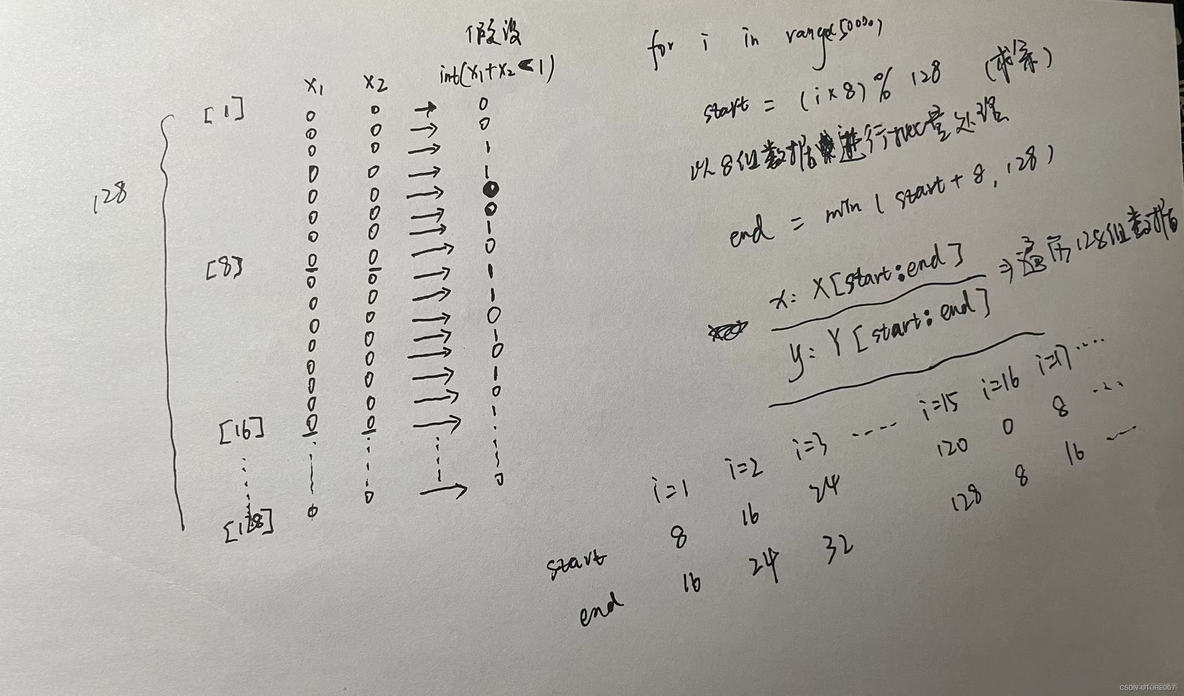 假设
x₁ x₂ int(x₁+x₂<1)
128
[1] 0 0 → 0
0 0 → 0
0 0 → 1
0 0 → 1
0 0 →
0 0 → 0
0 0 → 1
[8] 0 0 → 0
0 0 → 1
0 0 → 1
0 0 → 0
0 0 → 1
0 0 → 0
0 0 → 1
0 0 → 0
[16] 0 0 → 1
[128] 0 0 → 0
for i in range(5000)
start = (i×8)% 128 (求余)
以8组数据进行 处理
end = min(start+8, 128)
x: X[start:end]
y: Y[start:end]
⇒遍历128组数据
i=1 i=2 i=3 ···· i=15 i=16 i=17 ····
start 8 16 24 120 0 8 ···
end 16 24 32 128 8 16 —
CSDN @TORE007